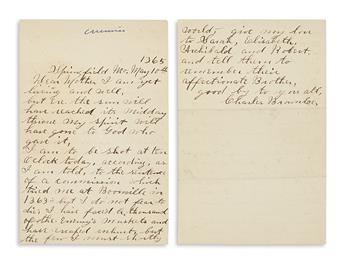 1865
Springfield Mo, May 10th
Dear Mother I am yet
living and well,
but Ere the sun will
have reached its midday
throne My spirit will
have gone to God who
gave it,
I am to be shot at ten
Oclock today, according, as
I am told, to the sentence
of a commission which
tried me at Boonville in
1863 but I do not fear to
die, I have faced a thousand
of the Enemy's Muskets and
have escaped unhurt, but
the few I must shortly
would give my love
to Sarah, Elizabeth,
Archibald and Robert,
and tell them to
remember their
affectionate Brother,
good by to you all,
Charles